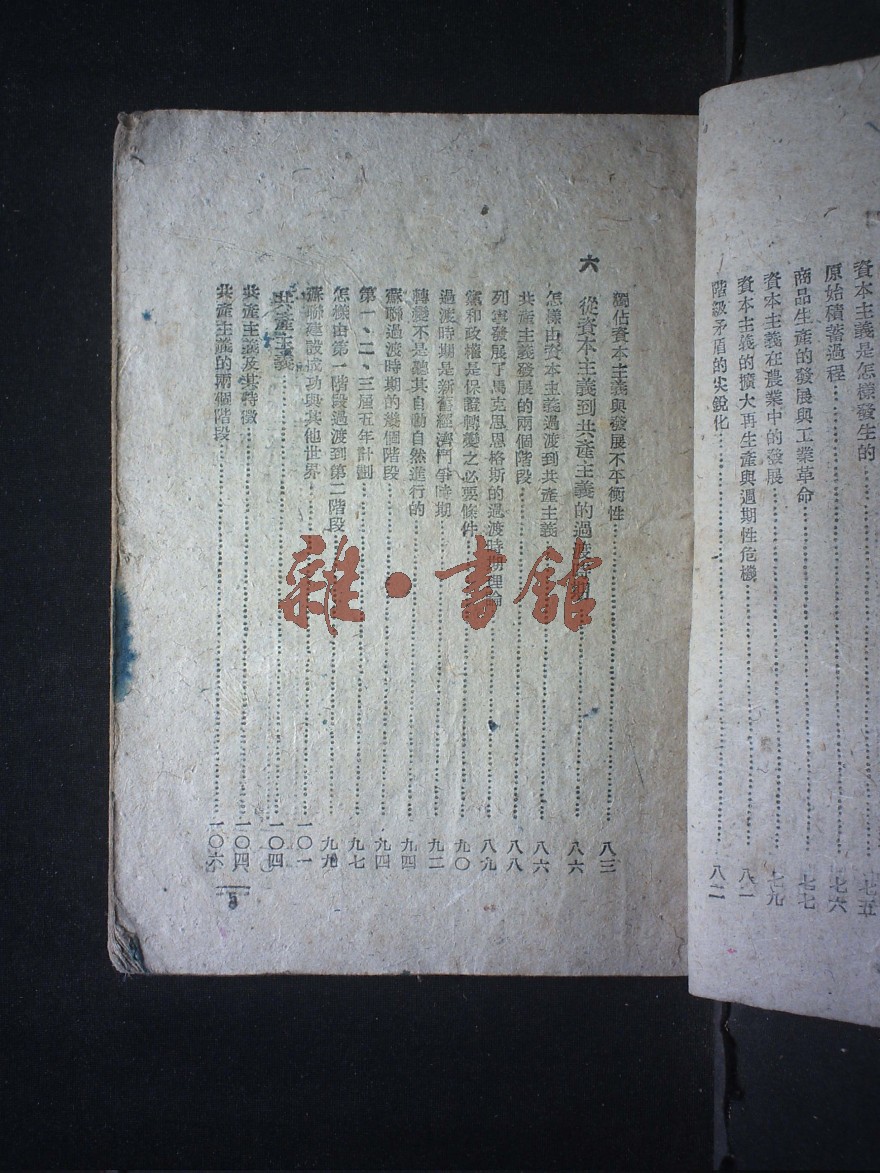 資本主義是怎樣發生的……七五
原始積蓄過程……七六
商品生產的發展與工業革命……七七
資本主義在農業中的發展……七九
資本主義的擴大再生產與週期性危機……八一
階級矛盾的尖銳化……八二
獨佔資本主義與發展不平衡性……八三
六 從資本主義到共產主義的過渡時期……八六
怎樣由資本主義過渡到共產主義……八六
共產主義發展的兩個階段……八八
列寧發展了馬克思恩格斯的過渡時期理論……八九
黨和政權是保證轉變之必要條件……九〇
過渡時期是新舊經濟鬥爭時期……九二
轉變不是聽其自動自然進行的……九四
蘇聯過渡時期的幾個階段……九四
第一、二、三屆五年計劃……九七
怎樣由第一階段過渡到第二階段……九九
蘇聯建設成功與其他世界……一〇一
共產主義……一〇四
共產主義及其特徵……一〇四
共產主義的兩個階段……一〇六
5
雜·書館